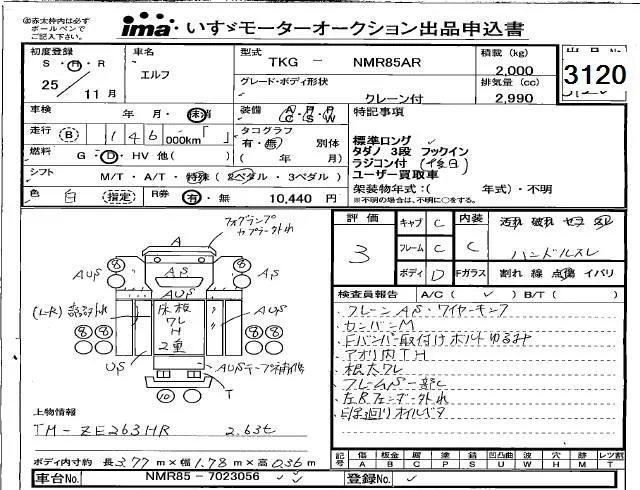 @赤太枠内は必ず
ボールペンで
ご記入下さい。
ima いすゞモーターオークション出品申込書
初度登録 S・H・R 25 11月
車名 エルフ
型式 TKG - NMR85AR
積載 (kg) 2,000
グレード・ボディ形状 クレーン付
排気量 (cc) 2,990
出品No
3120
車検 年 月・抹消
装備 A/C P/S P/W
特記事項
走行 B 146 000km「 」
タコグラフ 有・無 別体
( 年 月)
標準ロング
タダノ 3段 フックイン
ラジコン付 (後日)
ユーザー買取車
燃料 G・D・HV 他( )
シフト M/T・A/T・特殊 (2ペダル・3ペダル)
架装物年式:( 年式)・不明
※不明の場合は、不明に○をする。
色 白 (指定) R券 有・無 10,440 円
評価 3
キャブ C
内装 C
フレーム C
ボディ D
Fガラス 割れ 線 点傷 イバリ
ハンドルスレ
検査員報告 A/C ( ✓ ) B/T ( )
・クレーンAS・ワイヤーキンク
・Fバンパー取付けボルトゆるみ
・アオリ内TH
・根太ワレ
・下廻りオイルベタ
フォグランプ
A
8 8
AUS
AS
AS
AUS
床板
ワレ
H
2重
8 8 8 8
US
T
10
上物情報
TM-ZE263HR 2.63t
ボディ内寸約 長 3.77 m×幅 1.78 m×高 0.36 m
記号 傷 A 板金 B 腐 C 塗 P 錆 S 凹凸曲 U 波 W 穴 H 跡 M レツ割 T
車台No. NMR85 - 7023056
登録No.